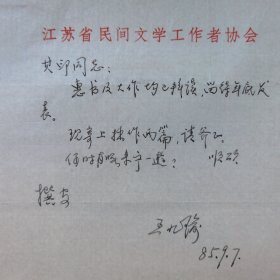 江苏省民间文学工作者协会
同志：
惠书及大作均已拜读，尚待年底发
表。
现寄上拙作两篇，请
何时有暇来宁一游？ 顺颂
撰安
王
85.9.7.